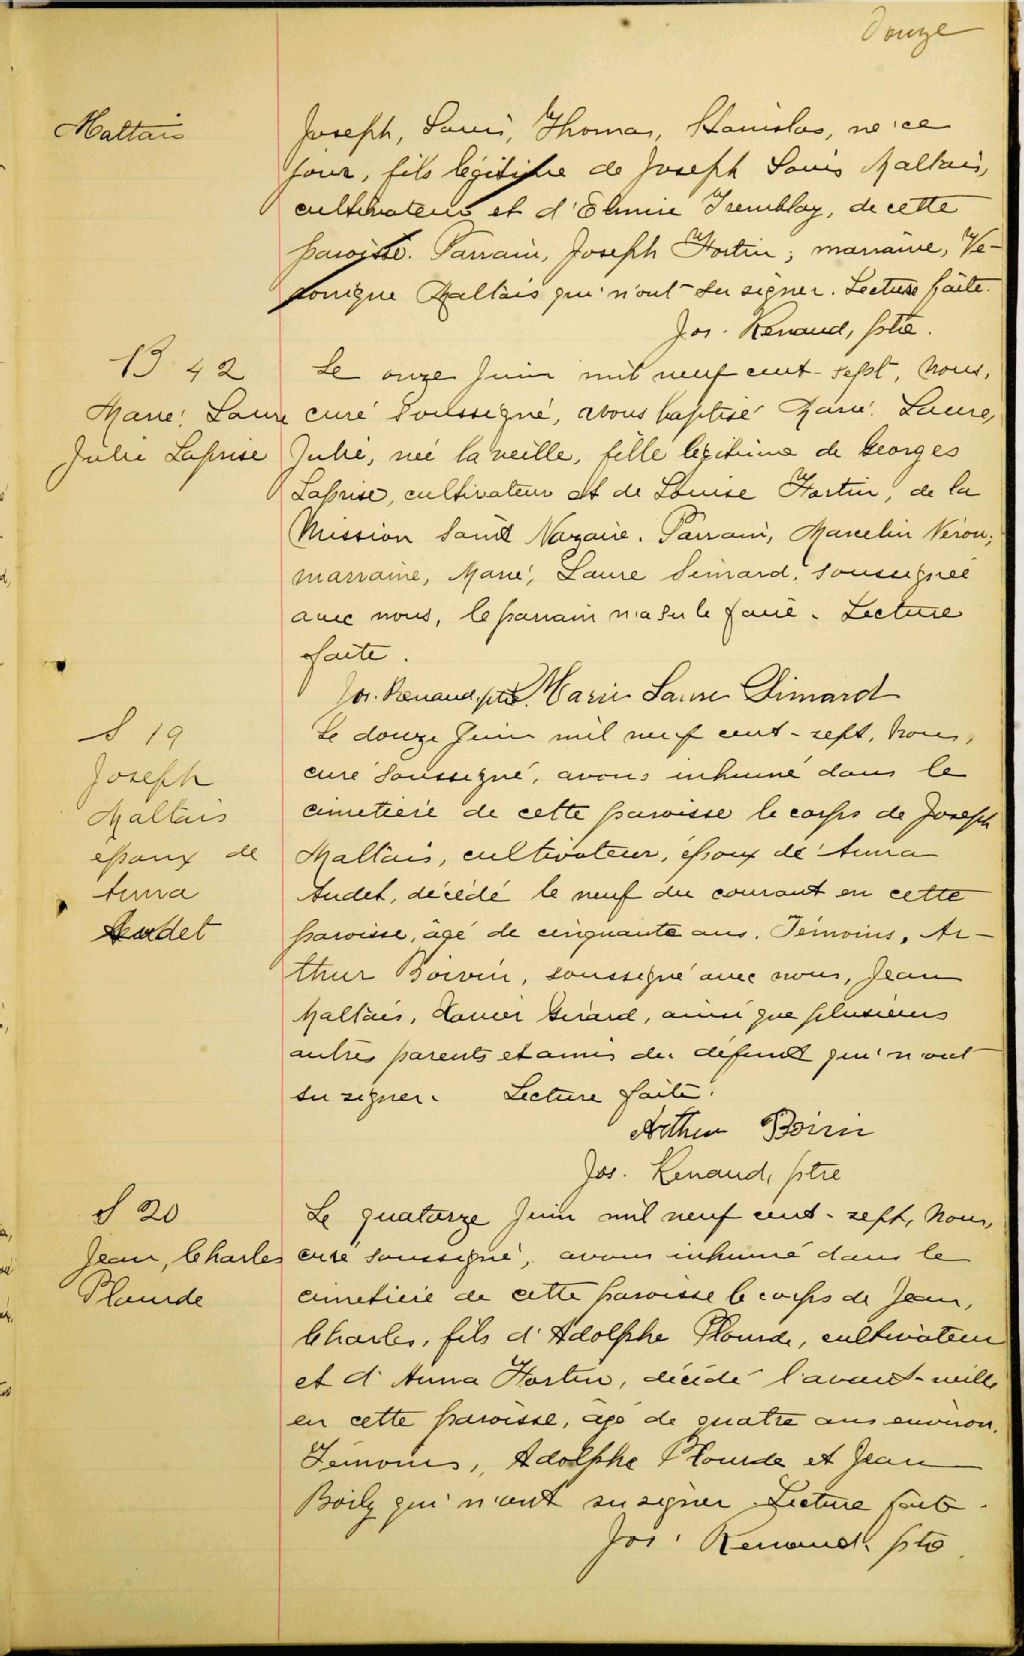 Douze
Maltais
Joseph, Louis, Thomas, Stanislas, né ce
jour, fils légitime de Joseph Louis Maltais,
cultivateur et d'Elmire Tremblay, de cette
paroisse. Parrain, Joseph Fortin; marraine, Vé-
ronique Maltais qui n'ont su signer. Lecture faite.
Jos. Renaud, ptre.
B 42
Marie, Laure
Julie Laprise
Le onze Juin mil neuf cent-sept, Nous,
curé soussigné, avons baptisé Marie, Laure,
Julie, née la veille, fille légitime de Georges
Laprise, cultivateur et de Louise Fortin, de la
Mission Saint Nazaire. Parrain, Marcelin Néron;
marraine, Marie, Laure Simard, soussignée
avec nous, le parrain n'a su le faire. Lecture
faite.
Jos. Renaud, ptre. Marie Laure Simard
S 19
Joseph
Maltais
époux de
Anna
Audet
Le douze Juin mil neuf cent-sept, Nous,
curé soussigné, avons inhumé dans le
cimetière de cette paroisse le corps de Joseph
Maltais, cultivateur, époux de Anna
Audet, décédé le neuf du courant en cette
paroisse, âgé de cinquante ans. Témoins, Ar-
thur Boivin, soussigné avec nous, Jean
Maltais, Xavier Girard, ainsi que plusieurs
autres parents et amis du défunt qui n'ont
su signer. Lecture faite.
Arthur Boivin
Jos. Renaud, ptre
S 20
Jean, Charles
Plourde
Le quatorze Juin mil neuf cent-sept, Nous,
curé soussigné, avons inhumé dans le
cimetière de cette paroisse le corps de Jean,
Charles, fils d'Adolphe Plourde, cultivateur
et d'Anna Fortin, décédé l'avant-veille
en cette paroisse, âgé de quatre ans environ.
Témoins, Adolphe Plourde et Jean
Boily qui n'ont su signer. Lecture faite.
Jos. Renaud, ptre.